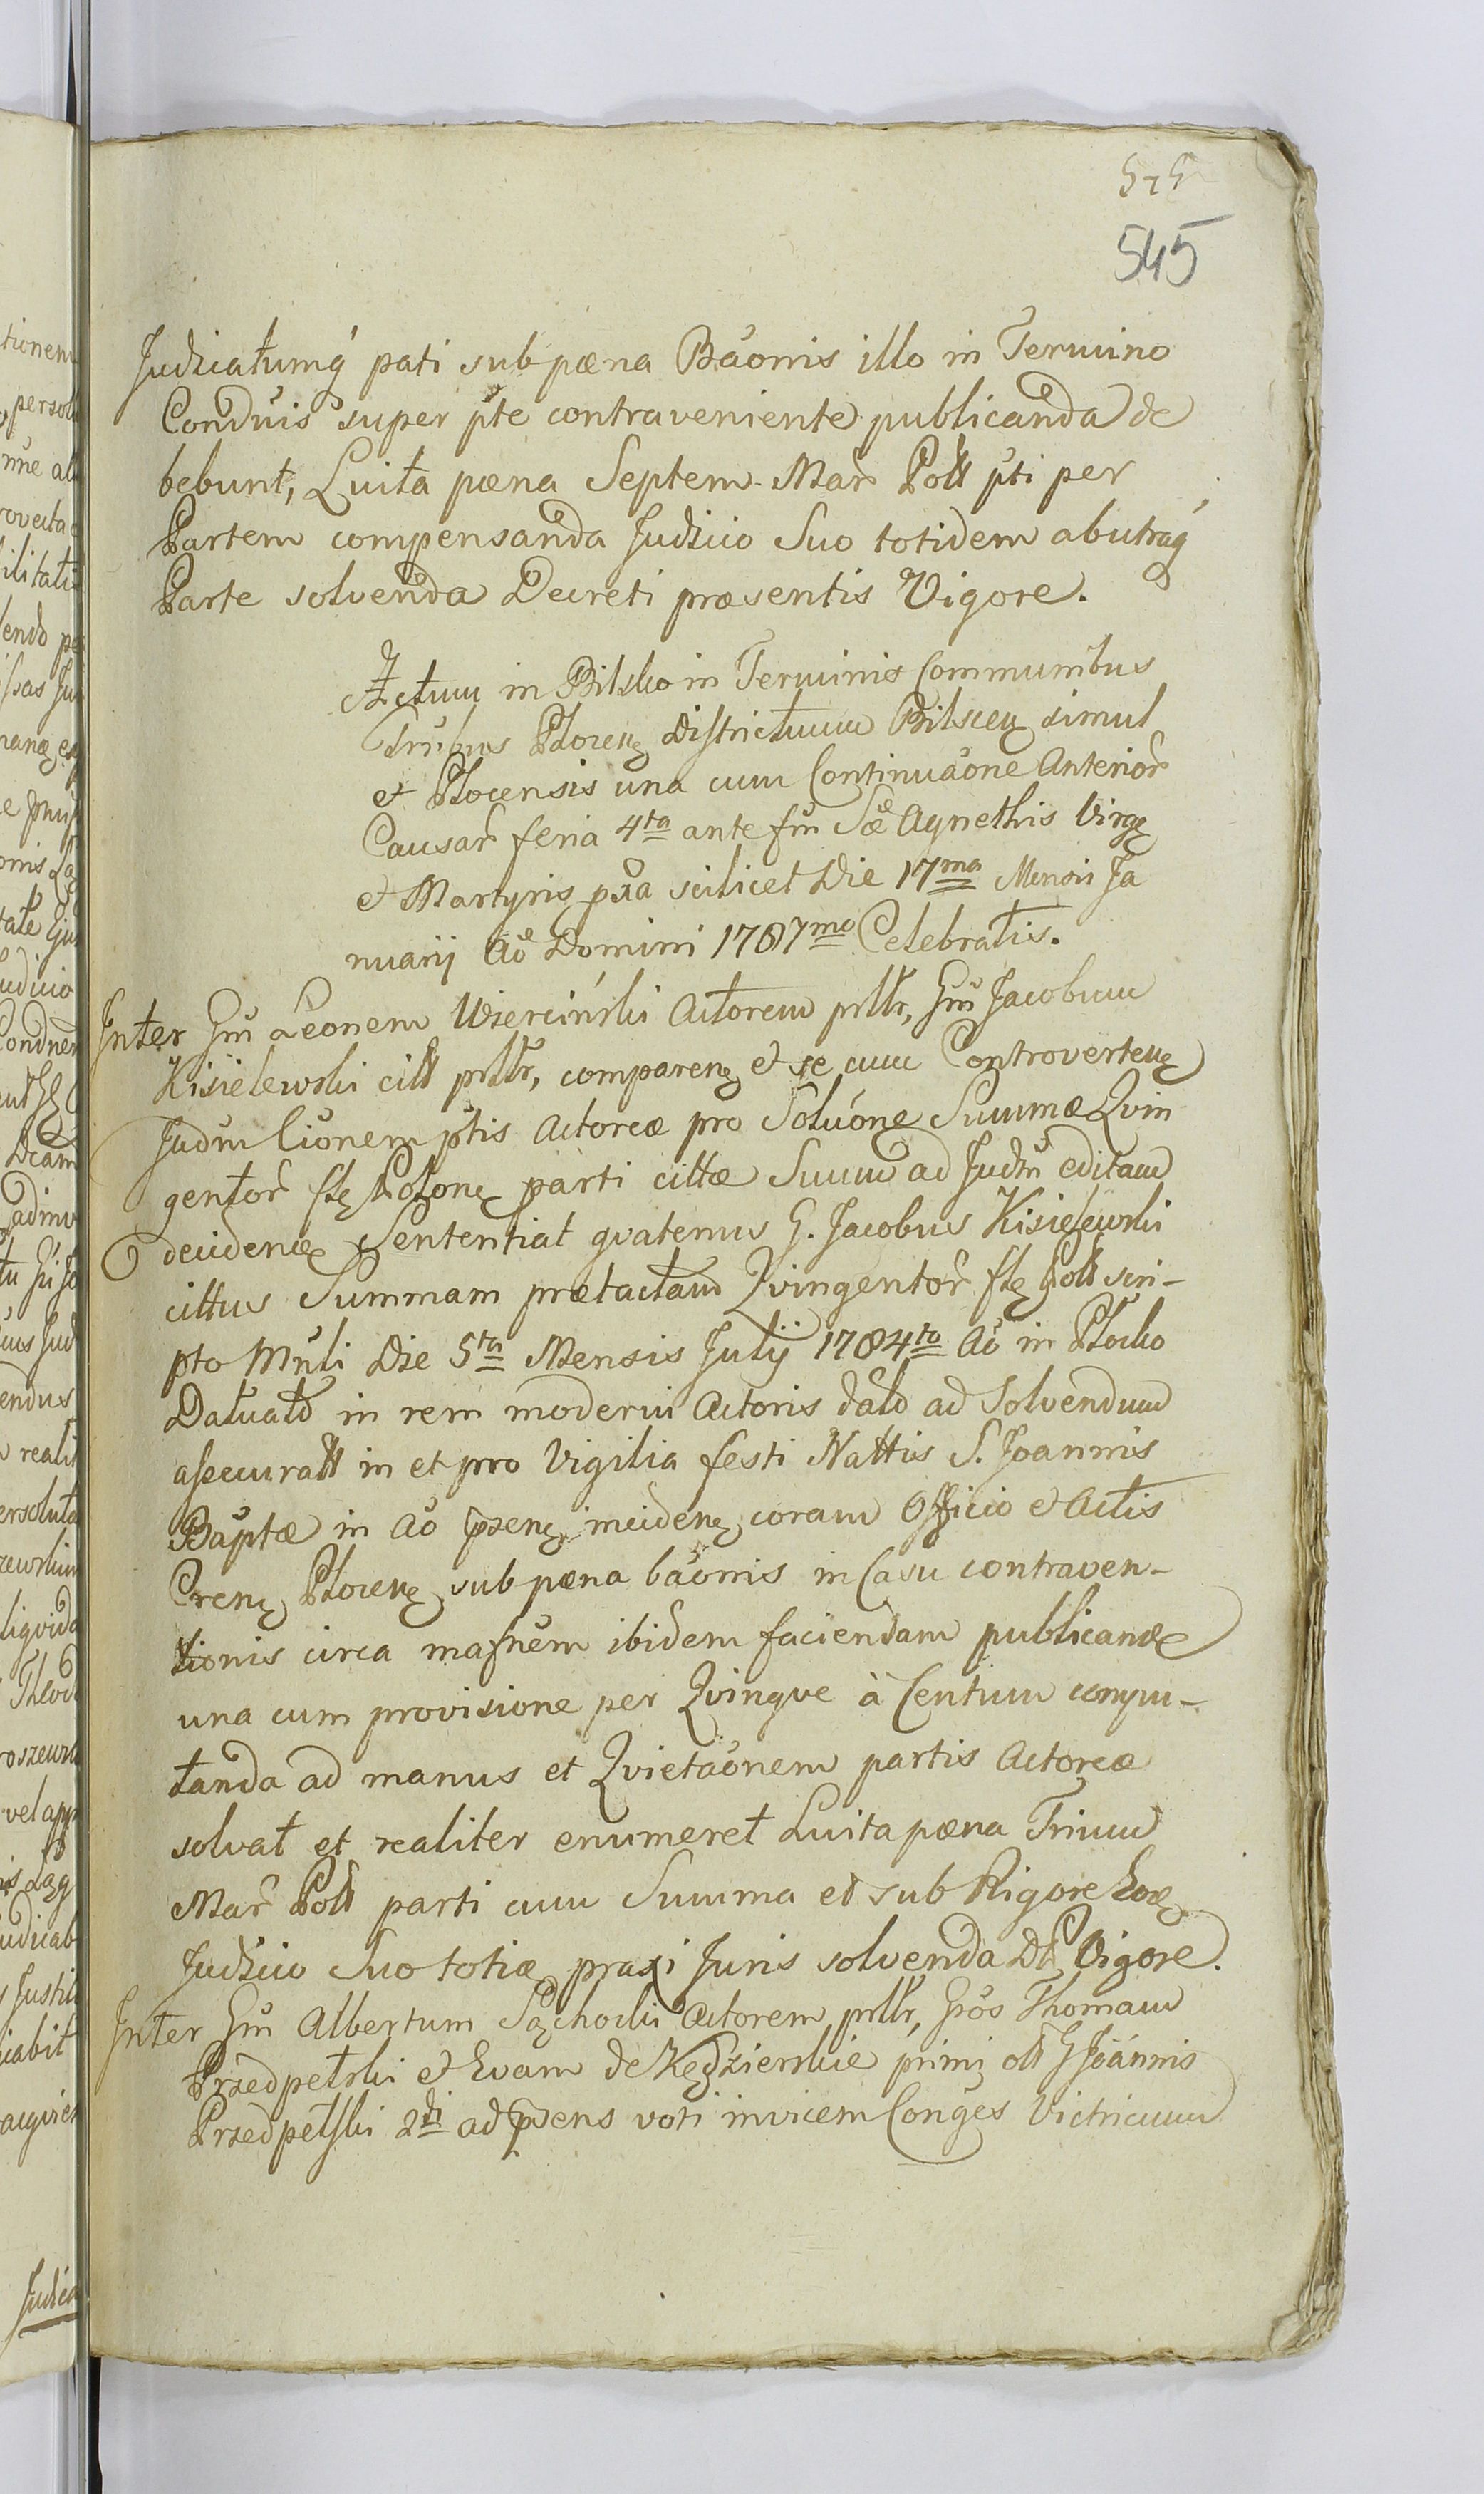 575
545
Judicatumq́ pati sub pæna Bãonis illo in Termino
Conduis super p̃te contraveniente publicanda de
bebunt, Luita pæna Septem Mar̃ Poll p̃ti per
Partem compensanda Judicio Suo totidem abutraq́
Parte solvenda Decreti præsentis Vigore.
Actum in Bilsko in Terminis Communibus
Plocen Districtuum Bilscen simul
et Plocensis una cum Continuãone Anterior̃
Causar̃ feria 4ta ante fm̃ Sæ Agnethis Virg
et Martyris pxa scilicet Die 17ma Mensis Ja
nuarij Ao Domini 1787mo Celebratis.
Inter Gm̃ Leonem Wierciński Actorem prllr, Gm̃ Jacobum
Kisielewski citt prllr, comparen et se cum Controverten
Judm̃ Cionem p̃tis Actoreæ pro Solúone Summæ Qvin
gentor̃ fle Polon parti cittæ Suum ad Judm̃ editam
decidendæ Sententiat qvatenus G. Jacobus Kisielewski
cittus Summam prætactam Qvingentor̃ fle Poll scri-
pto Mnli Die 5ta Mensis Julij 1784to Ao in Plocko
Datuatd in rem moderni Actoris datd ad Solvendum
assecuratt in et pro Vigilia festi Nattis S. Joannis
Baptæ in Ao p̃sen inciden coram Officio et Actis
Cren Plocen sub pæna bãonis in Casu contraven-
tionis circa mafñem ibidem faciendam publicandæ
una cum provisione per Qvinqve à Centum compu-
tanda ad manus et Qvietãonem partis Actoreæ
solvat et realiter enumeret Luita pæna Trium
Mar̃ Poll parti cum Summa et sub Rigore Eoꝝ
Judicio Suo totiæ praxi Juris solvenda Dti Vigore.
Inter Gm̃ Albertum Sochocki Actorem prllr, Gros Thomam
Przedpełski et Evam de Kędzierskie primi oll G Joánnis
Przedpełski 2di ad p̃sens voti invicem Conges Victricum